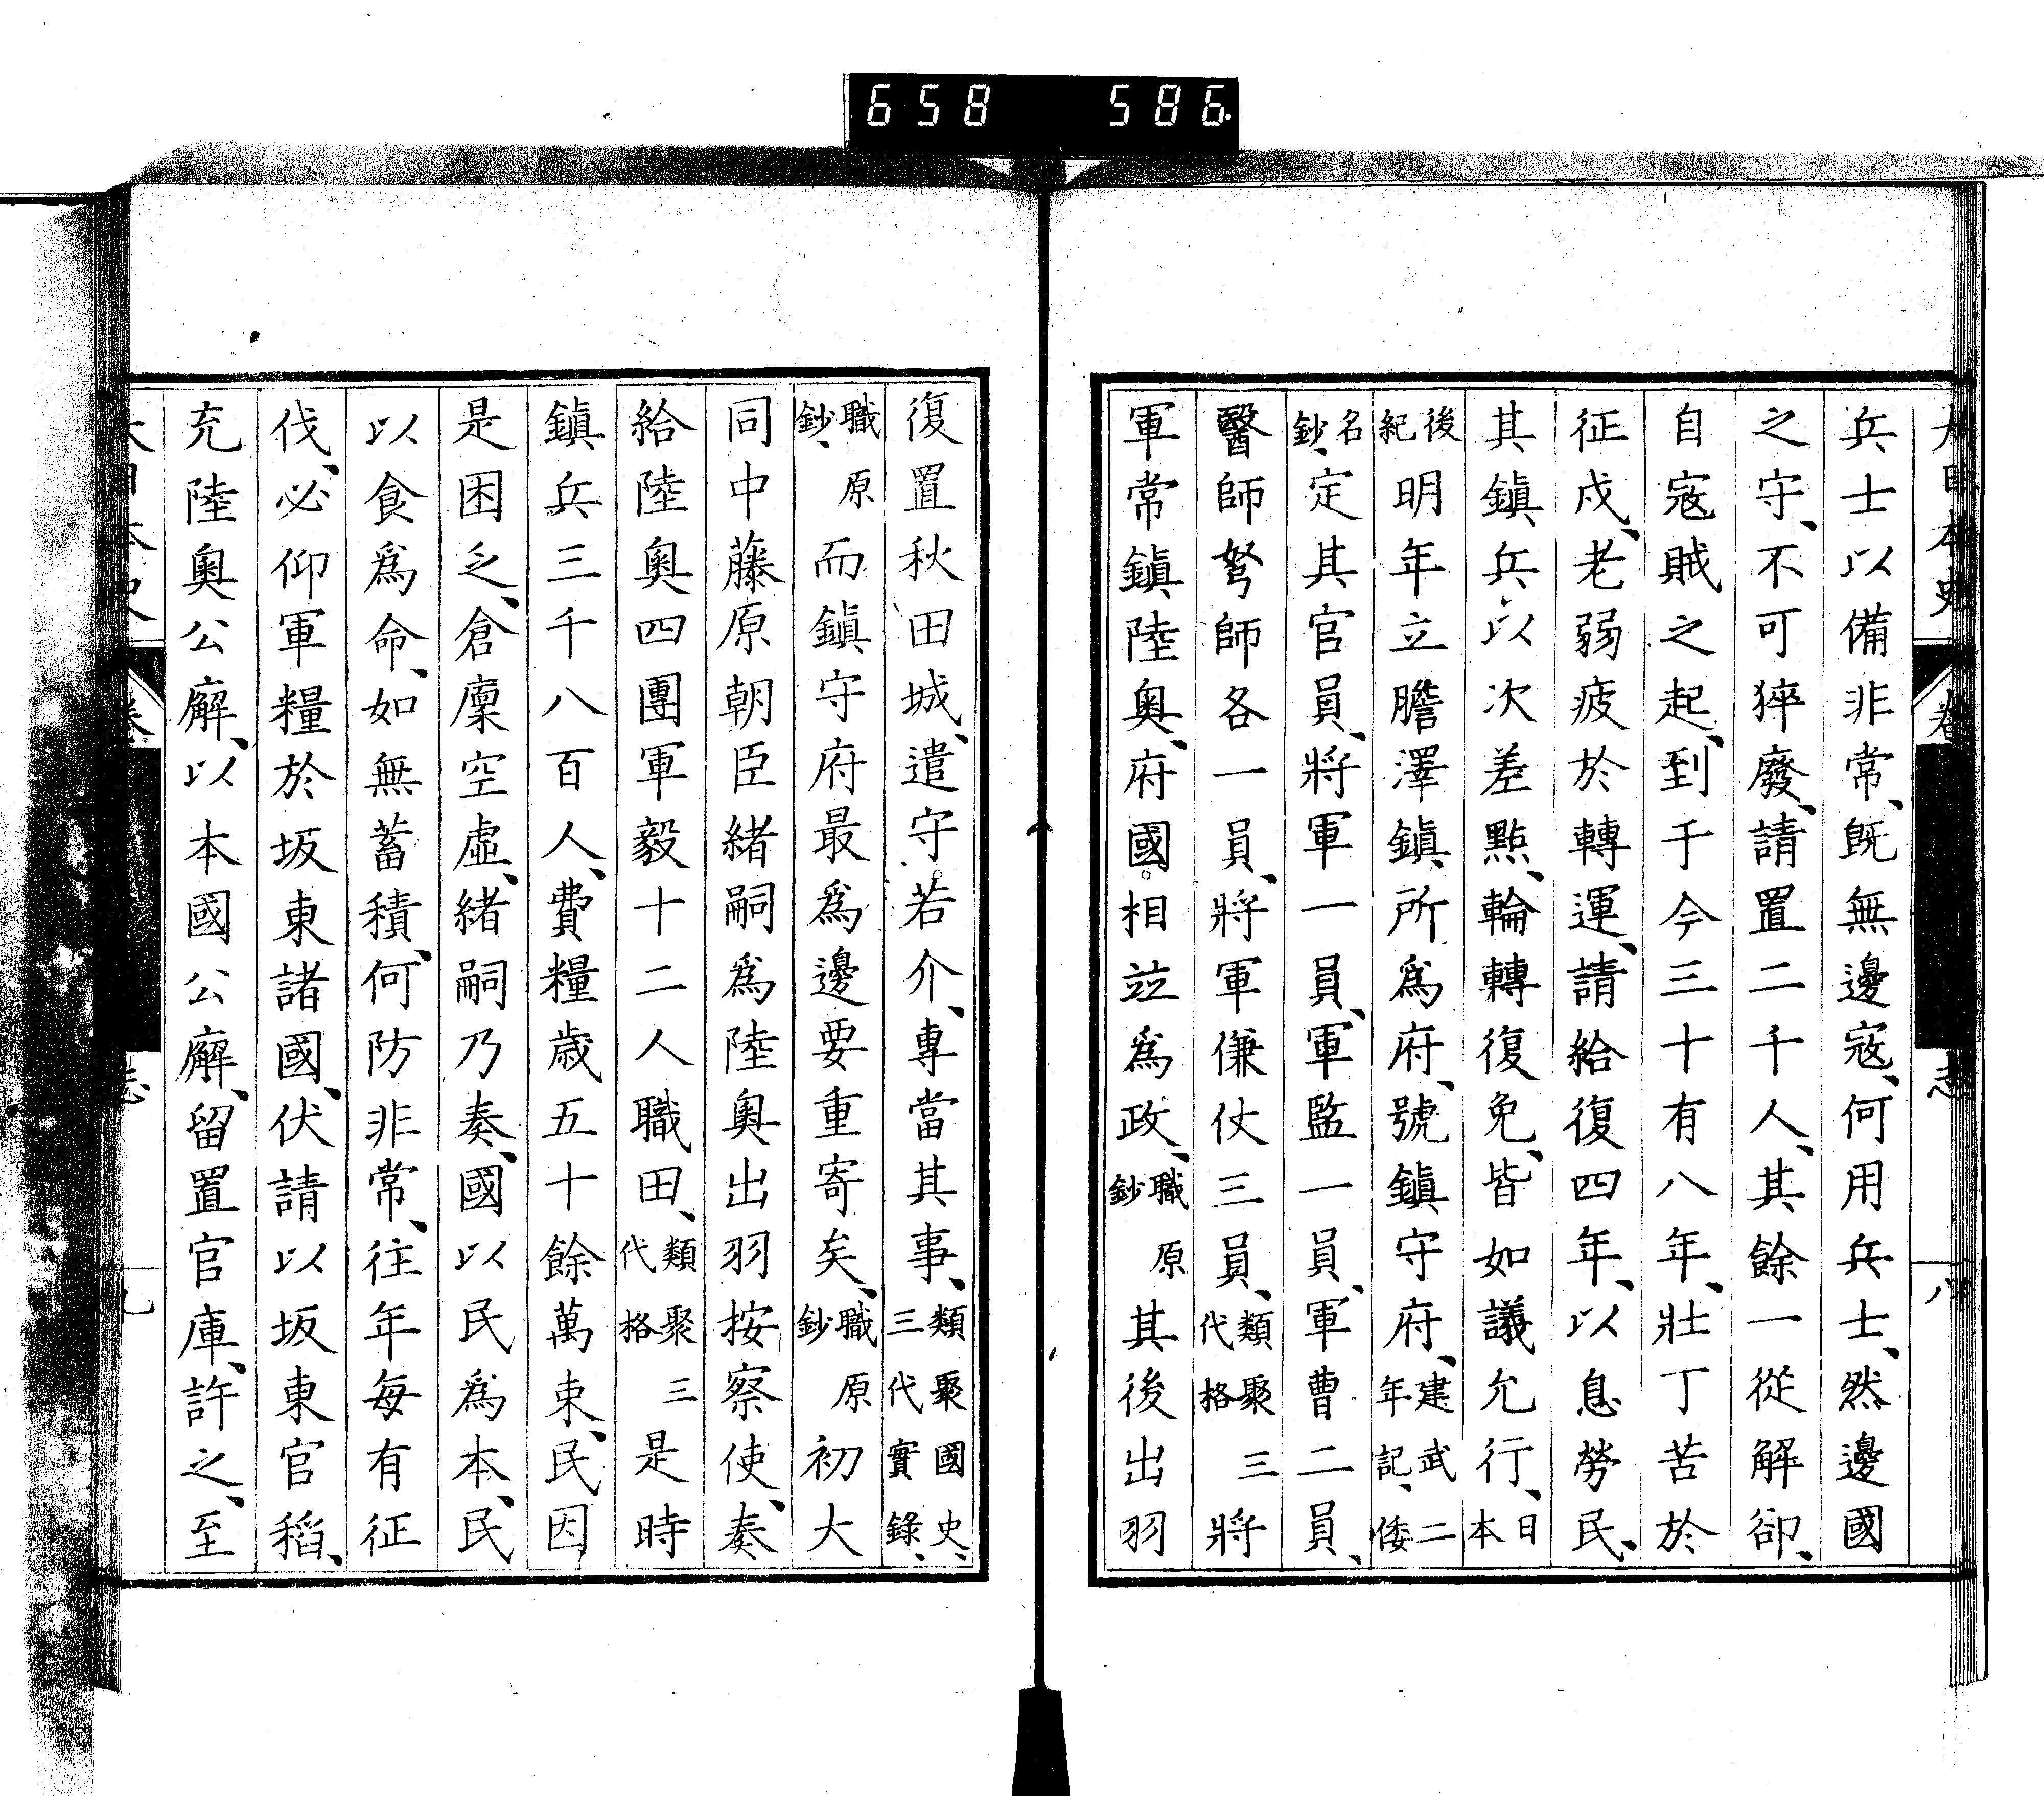 658 586
大日本史 卷 志 八
兵士以備非常、旣無邊寇、何用兵士、然邊國
之守、不可猝廢、請置二千人、其餘一從解卻、
自寇賊之起、到于今三十有八年、壯丁苦於
征戍、老弱疲於轉運、請給復四年、以息勞民、
其鎭兵以次差點、輪轉復免、皆如議允行、日本
後紀明年立膽澤鎭所爲府、號鎭守府、建武二年記、倭
名鈔、定其官員、將軍一員、軍監一員、軍曹二員、
醫師弩師各一員、將軍傔仗三員、類聚三代格將
軍常鎭陸奧、府國相竝爲政、職原鈔其後出羽
復置秋田城、遣守若介、專當其事、類聚國史、三代實錄、
職原鈔、而鎭守府最爲邊要重寄矣、職原鈔初大
同中藤原朝臣緒嗣爲陸奧出羽按察使、奏
給陸奧四團軍毅十二人職田、類聚三代格是時
鎭兵三千八百人、費糧歲五十餘萬束、民因
是困乏、倉廩空虛、緒嗣乃奏、國以民爲本、民
以食爲命、如無蓄積、何防非常、往年每有征
伐、必仰軍糧於坂東諸國、伏請以坂東官稻、
充陸奧公廨、以本國公廨、留置官庫、許之、至
大日本史 卷 志 九